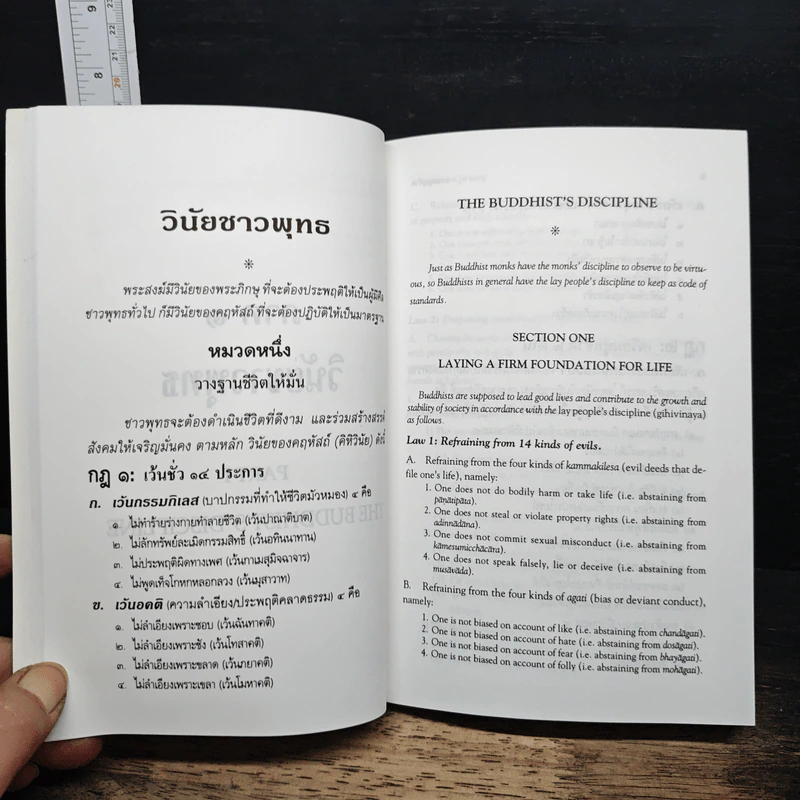 วินัยชาวพุทธ
พระสงฆ์มีวินัยของพระภิกษุ ที่จะต้องประพฤติให้เป็นผู้มีศีล
ชาวพุทธทั่วไป ก็มีวินัยของคฤหัสถ์ ที่จะต้องปฏิบัติให้เป็นมาตรฐาน
หมวดหนึ่ง
วางฐานชีวิตให้มั่น
ชาวพุทธจะต้องดำเนินชีวิตที่ดีงาม และร่วมสร้างสรรค์
สังคมให้เจริญมั่นคง ตามหลัก วินัยของคฤหัสถ์ (คิหิวินัย) ดังนี้
กฎ ๑: เว้นชั่ว ๑๔ ประการ
ก. เว้นกรรมกิเลส (บาปกรรมที่ทำให้ชีวิตมัวหมอง) ๔ คือ
๑. ไม่ทำร้ายร่างกายทำลายชีวิต (เว้นปาณาติบาต)
๒. ไม่ลักทรัพย์ละเมิดกรรมสิทธิ์ (เว้นอทินนาทาน)
๓. ไม่ประพฤติผิดทางเพศ (เว้นกาเมสุมิจฉาจาร)
๔. ไม่พูดเท็จโกหกหลอกลวง (เว้นมุสาวาท)
ข. เว้นอคติ (ความลำเอียง/ประพฤติคลาดธรรม) ๔ คือ
๑. ไม่ลำเอียงเพราะชอบ (เว้นฉันทาคติ)
๒. ไม่ลำเอียงเพราะชัง (เว้นโทสาคติ)
๓. ไม่ลำเอียงเพราะขลาด (เว้นภยาคติ)
๔. ไม่ลำเอียงเพราะเขลา (เว้นโมหาคติ)
THE BUDDHIST'S DISCIPLINE
Just as Buddhist monks have the monks' discipline to observe to be virtu-
ous, so Buddhists in general have the lay people's discipline to keep as code of
standards.
SECTION ONE
LAYING A FIRM FOUNDATION FOR LIFE
Buddhists are supposed to lead good lives and contribute to the growth and
stability of society in accordance with the lay people's discipline (gihivinaya)
as follows.
Law 1: Refraining from 14 kinds of evils.
A. Refraining from the four kinds of kammakilesa (evil deeds that de-
file one's life), namely:
1. One does not do bodily harm or take life (i.e. abstaining from
pāṇātipāta).
2. One does not steal or violate property rights (i.e. abstaining from
adinnādāna).
3. One does not commit sexual misconduct (i.e. abstaining from
kāmesumicchācāra).
4. One does not speak falsely, lie or deceive (i.e. abstaining from
musāvāda).
B. Refraining from the four kinds of agati (bias or deviant conduct),
namely:
1. One is not biased on account of like (i.e. abstaining from chandāgati).
2. One is not biased on account of hate (i.e. abstaining from dosāgati).
3. One is not biased on account of fear (i.e. abstaining from bhayāgati).
4. One is not biased on account of folly (i.e. abstaining from mohāgati).